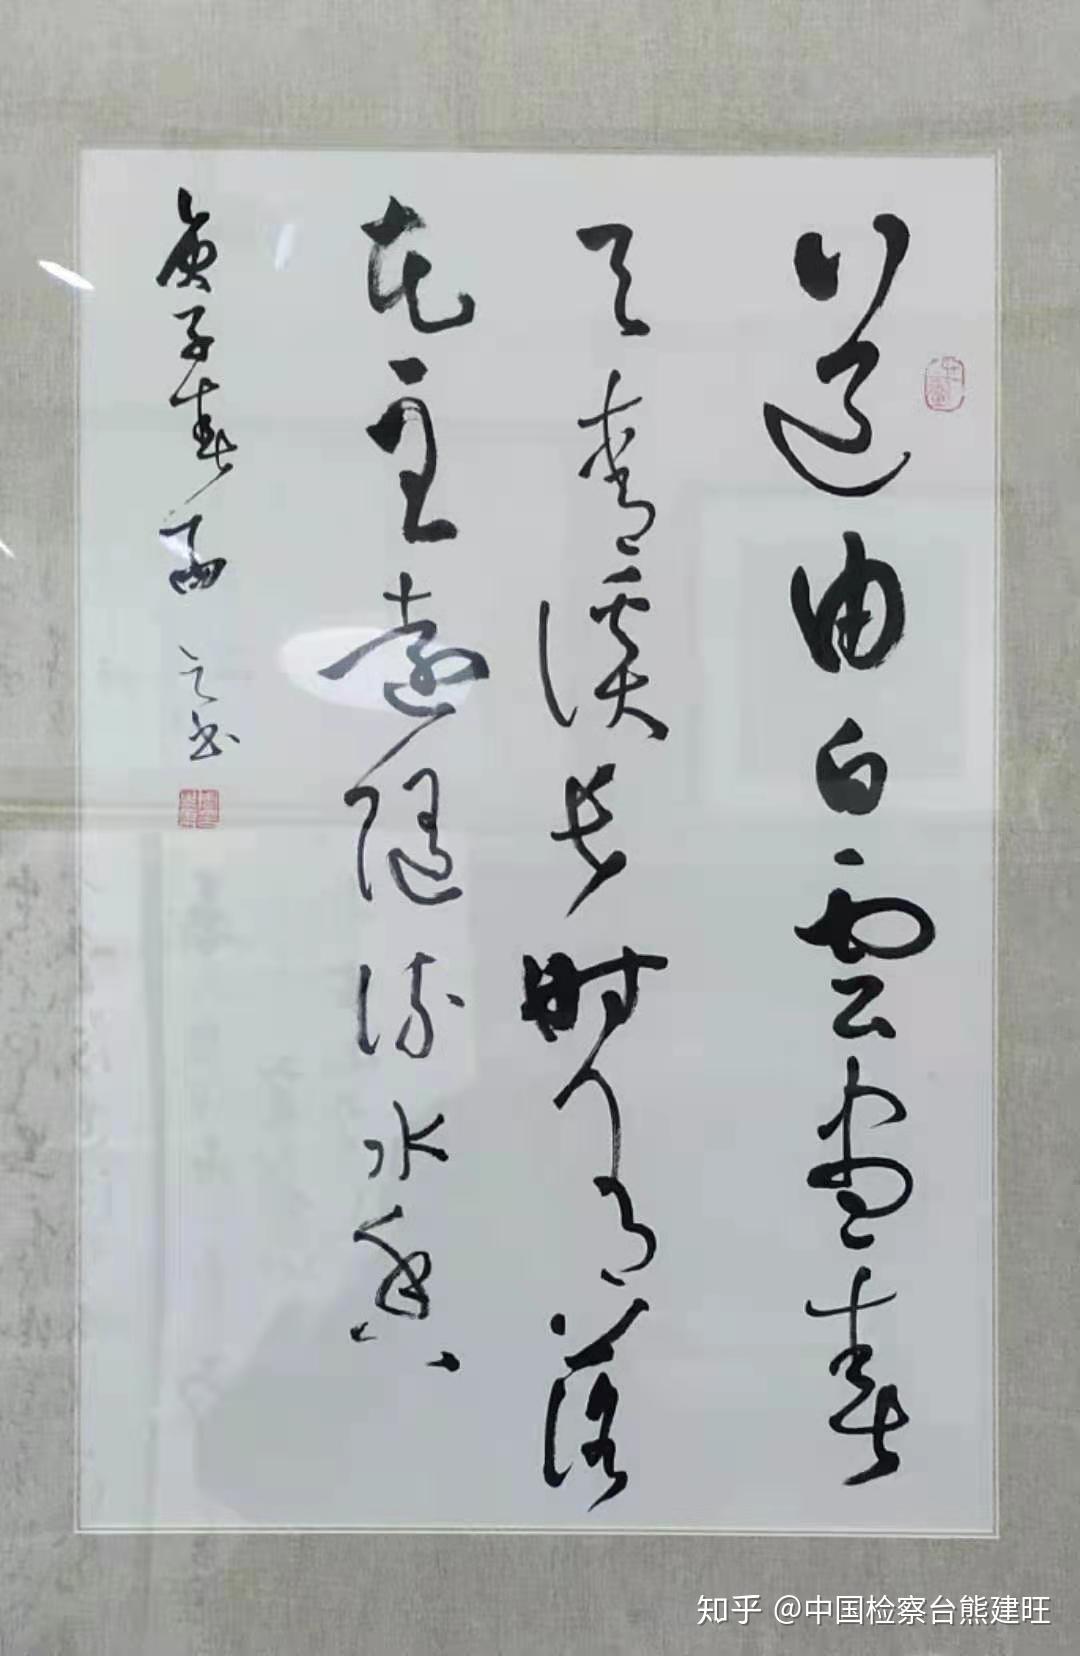 道由白雲盡春
与青溪长时有落
花至遠隨流水香
庚子春 之书
知乎 @中国检察台熊建旺